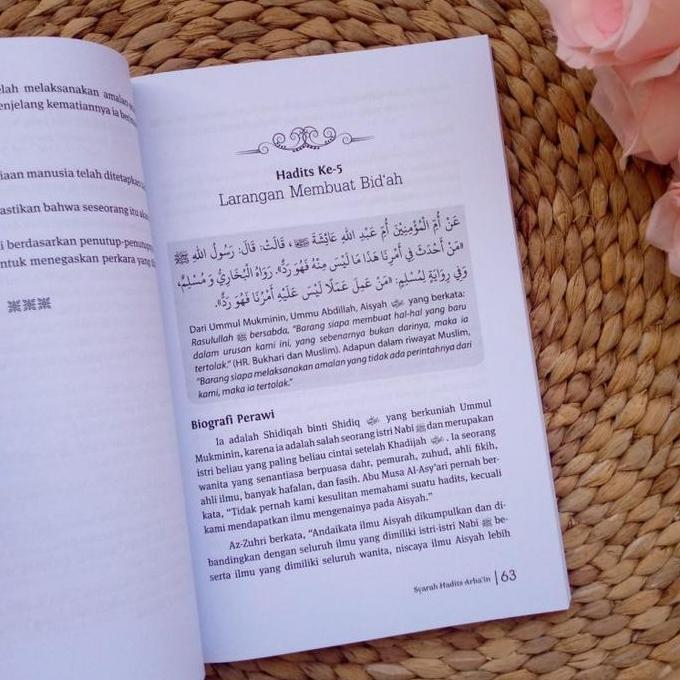 melaksanakan amalan
menjelang kematiannya ia
manusia telah ditetapkan
bahwa seseorang itu
berdasarkan penutup-penutupnya
untuk menegaskan perkara yang
Hadits Ke-5
Larangan Membuat Bid'ah
عَنْ أُمِّ الْمُؤْمِنِيْنَ أُمِّ عَبْدِ اللهِ عَائِشَةَ ، قَالَتْ: قَالَ: رَسُوْلُ اللهِ ﷺ
«مَنْ أَحْدَثَ فِي أَمْرِنَا هَذَا مَا لَيْسَ مِنْهُ فَهُوَ رَدٌّ». رَوَاهُ الْبُخَارِيُّ وَ مُسْلِمٌ،
وَفِي رِوَايَةٍ لِمُسْلِمٍ: «مَنْ عَمِلَ عَمَلًا لَيْسَ عَلَيْهِ أَمْرُنَا فَهُوَ رَدٌّ».
Dari Ummul Mukminin, Ummu Abdillah, Aisyah yang berkata:
Rasulullah ﷺ bersabda, "Barang siapa membuat hal-hal yang baru
dalam urusan kami ini, yang sebenarnya bukan darinya, maka ia
tertolak." (HR. Bukhari dan Muslim). Adapun dalam riwayat Muslim,
"Barang siapa melaksanakan amalan yang tidak ada perintahnya dari
kami, maka ia tertolak."
Biografi Perawi
Ia adalah Shidiqah binti Shidiq yang berkuniah Ummul
Mukminin, karena ia adalah salah seorang istri Nabi ﷺ dan merupakan
istri beliau yang paling beliau cintai setelah Khadijah . Ia seorang
wanita yang senantiasa berpuasa dahr, pemurah, zuhud, ahli fikih,
ahli ilmu, banyak hafalan, dan fasih. Abu Musa Al-Asy'ari pernah ber-
kata, "Tidak pernah kami kesulitan memahami suatu hadits, kecuali
kami mendapatkan ilmu mengenainya pada Aisyah."
Az-Zuhri berkata, "Andaikata ilmu Aisyah dikumpulkan dan di-
bandingkan dengan seluruh ilmu yang dimiliki istri-istri Nabi ﷺ be-
serta ilmu yang dimiliki seluruh wanita, niscaya ilmu Aisyah lebih
Syarah Hadits Arba'in | 63